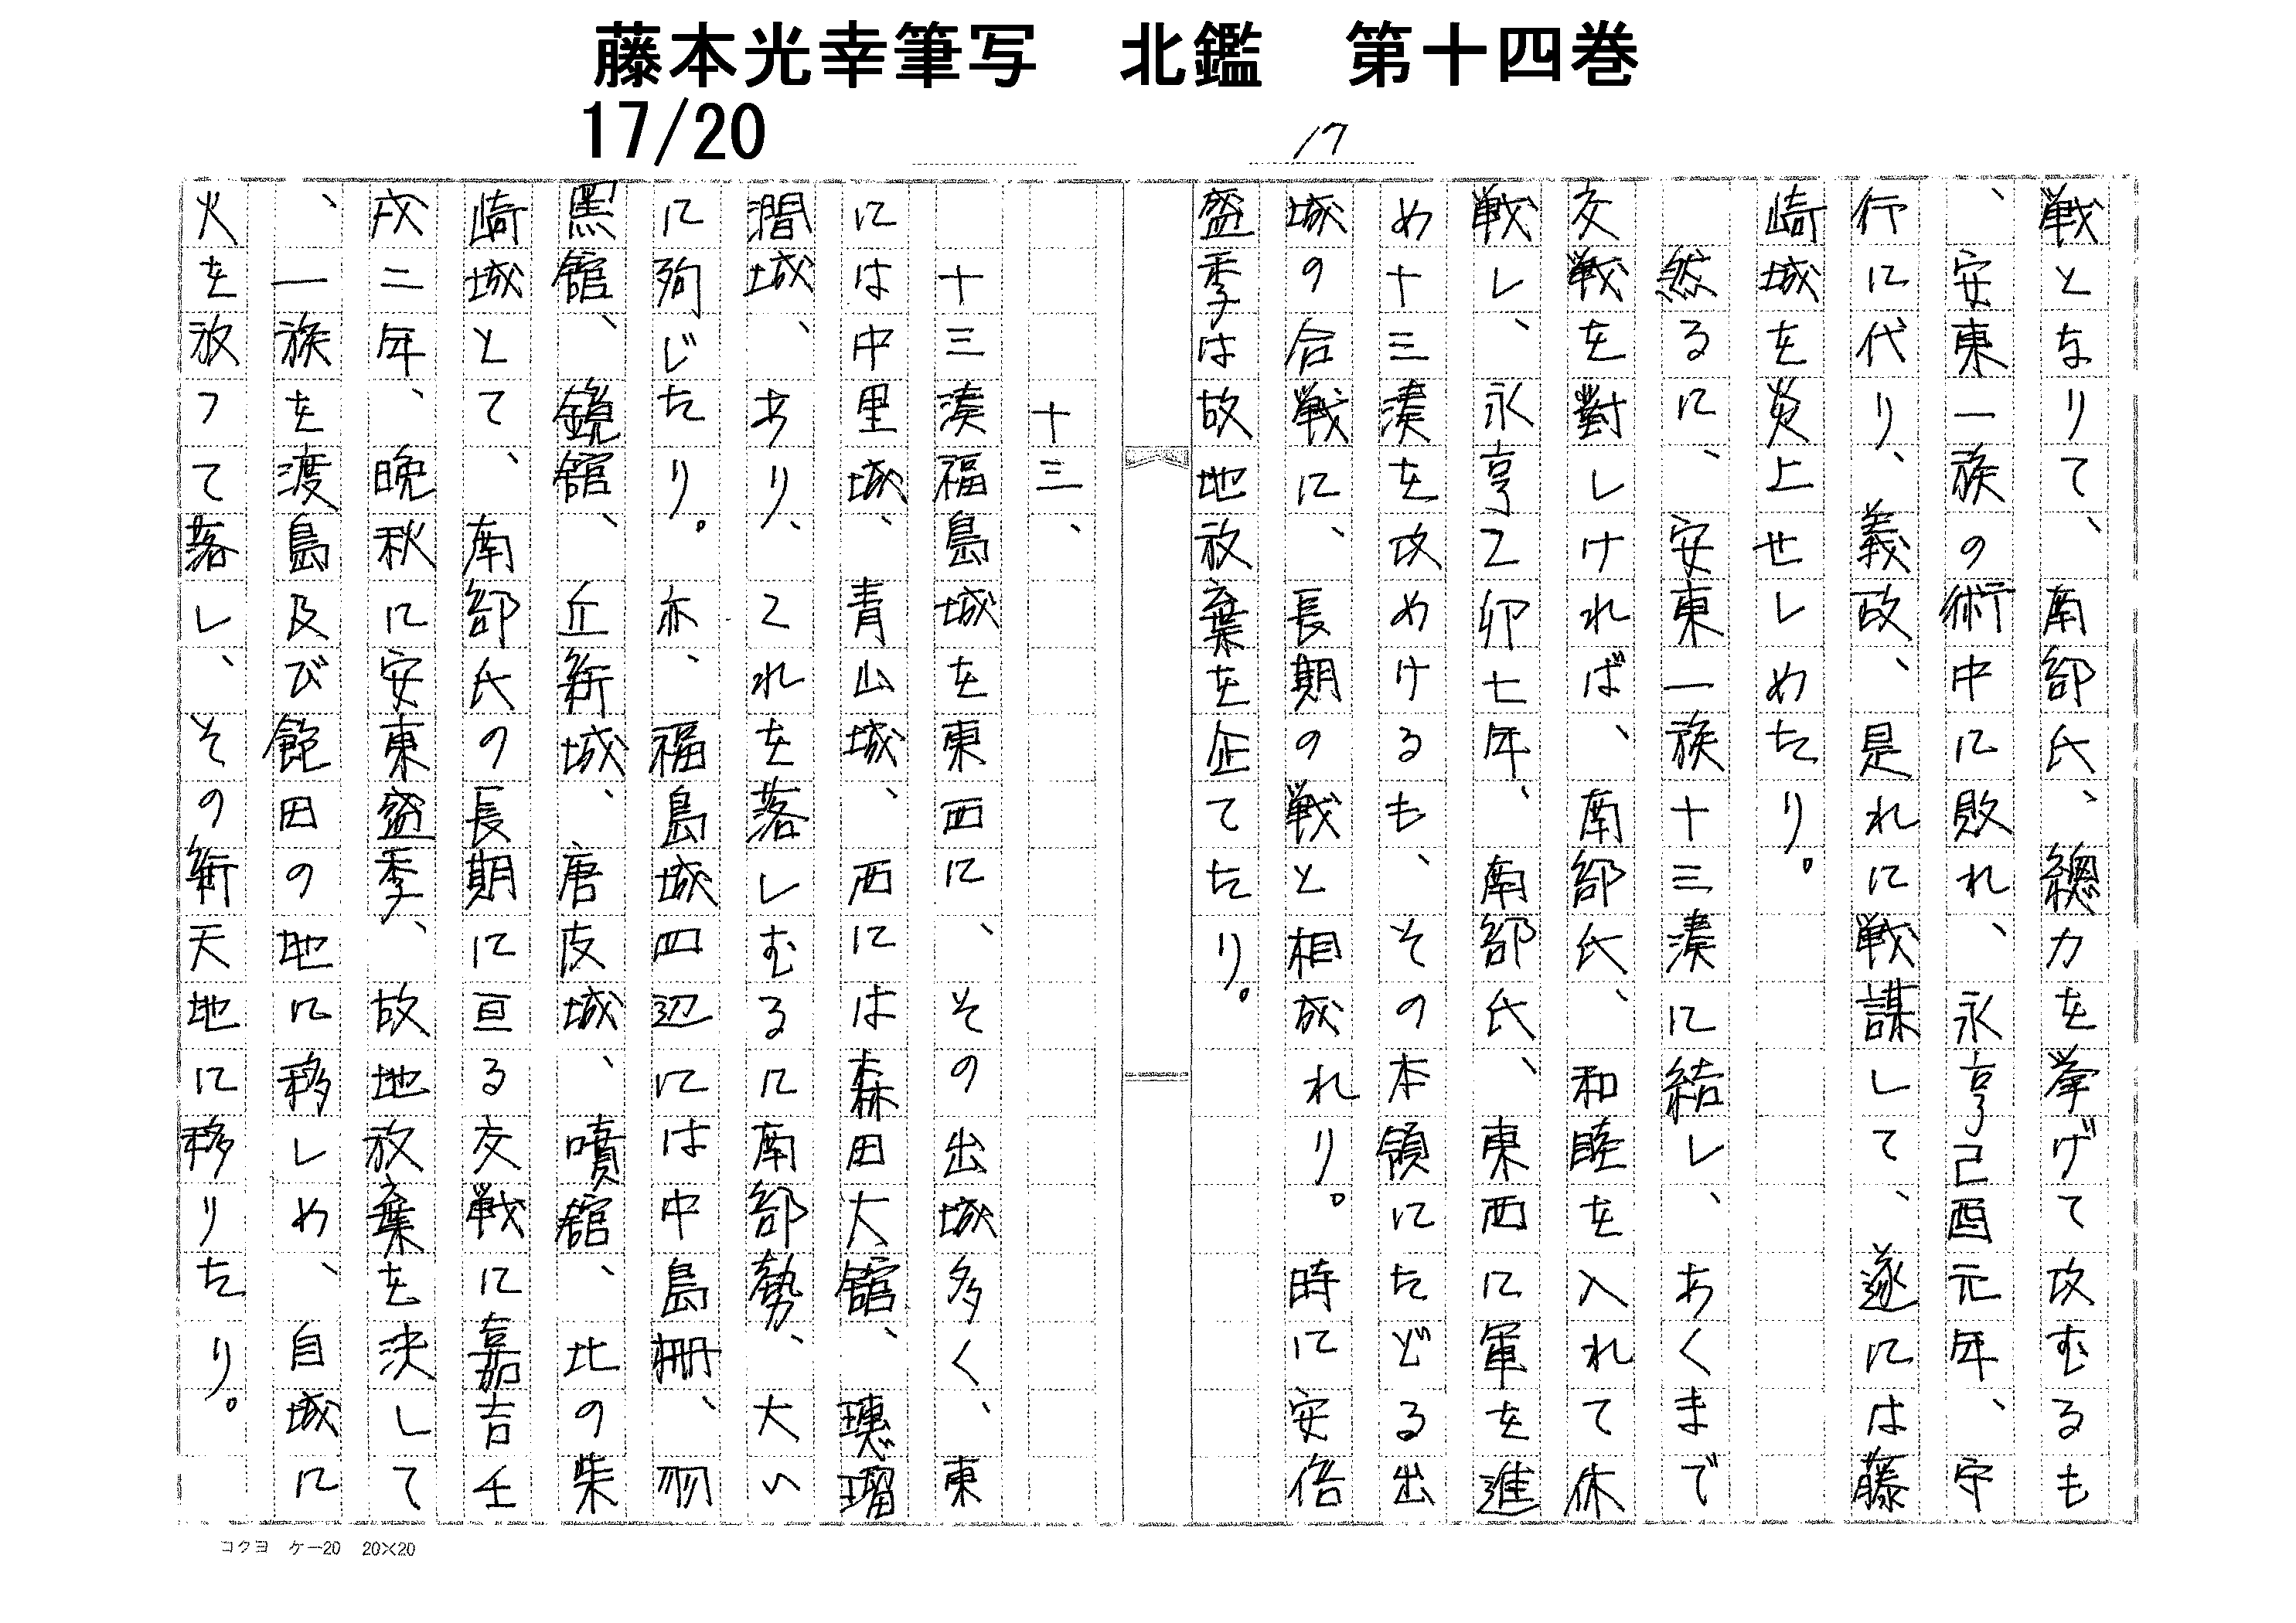 藤本光幸筆写　北鑑　第十四巻
17/20
17
戦となりて、南部氏、總力を挙げて攻むるも
、安東一族の術中に敗れ、永亨己酉元年、守
行に代り、義政、是れに戦謀して、遂には藤
崎城を炎上せしめたり。
然るに、安東一族十三湊に結し、あくまで
交戦を對しければ、南部氏、和睦を入れて休
戦し、永亨乙卯七年、南部氏、東西に軍を進
め十三湊を攻めけるも、その本領にたどる出
城の合戦に、長期の戦と相成れり。時に安倍
盛季は故地放棄を企てたり。
十三、
十三湊福島城を東西に、その出城多く、東
には中里城、青山城、西には森田大舘、璤瑠
澗城、あり、これを落しむるに南部勢、大い
に殉じたり。亦、福島城四辺には中島柵、羽
黒舘、鏡舘、丘新城、唐皮城、噴舘、此の柴
崎城とて、南部氏の長期に亘る交戦に嘉吉壬
戌二年、晩秋に安東盛季、故地放棄を決して
、一族を渡島及び飽田の地に移しめ、自城に
火を放つて落し、その新天地に移りたり。
コクヨ　ケー20　20×20